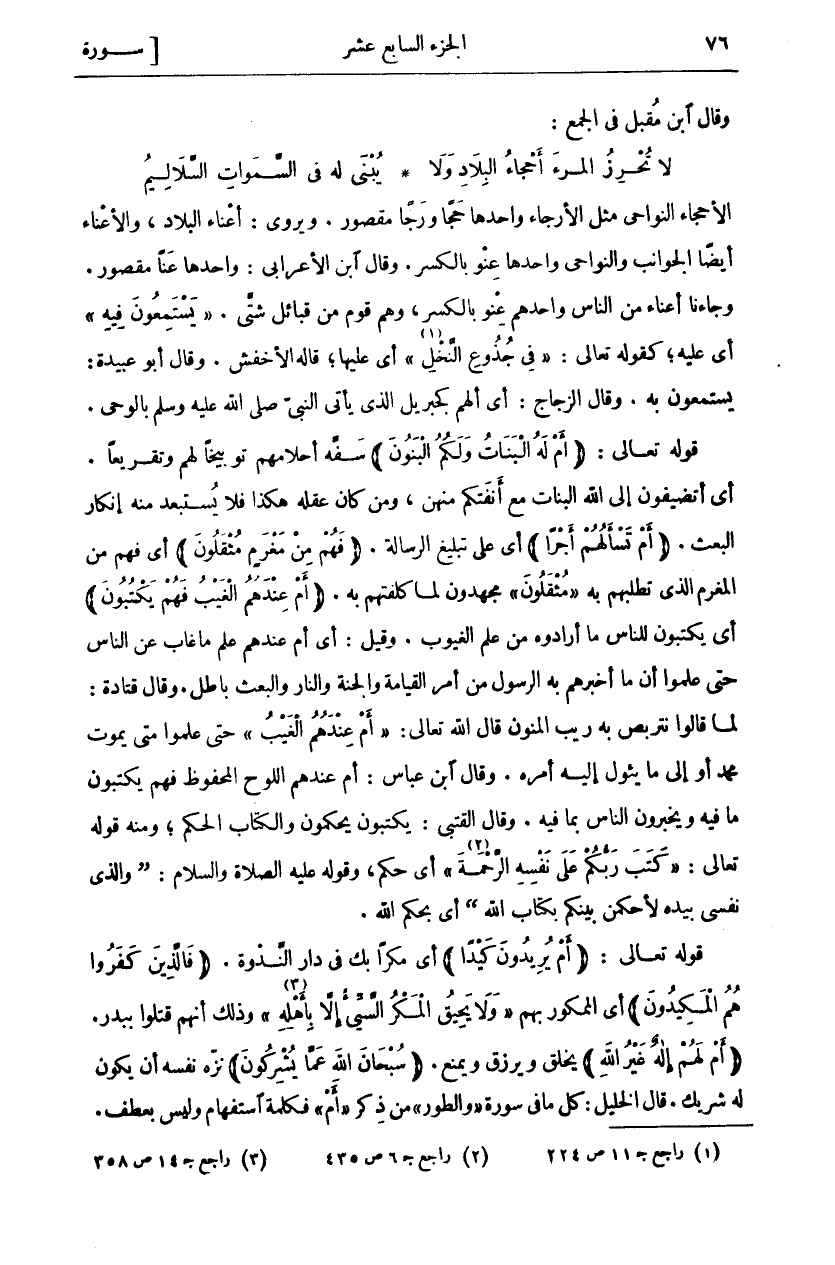 ٧٦ الجزء السابع عشر [ ســورة
وقال ٱبن مُقبل فى الجمع :
لا تُحْرِزُ المرءَ أَحْجاءُ البِلَادِ وَلَا * يُبْنَى له فى السَّمَواتِ السَّلَالِـيمُ
الأحجاء النواحى مثل الأرجاء واحدها حَجًا ورَجًا مقصور . ويروى : أعْناء البلاد ، والأعْناء
أيضًا الجوانب والنواحى واحدها عِنْو بالكسر . وقال ٱبن الأعرابى : واحدها عَنًا مقصور .
وجاءنا أعناء من الناس واحدهم عِنْو بالكسر ، وهم قوم من قبائل شتَّى . « يَسْتَمِعُونَ فِيهِ »
أى عليه ؛ كقوله تعالى : « فِى جُذُوعِ النَّخْلِ (١) » أى عليها ؛ قاله الأخفش . وقال أبو عبيدة :
يستمعون به . وقال الزجاج : أى ألهم كجبريل الذى يأتى النبىّ صلى الله عليه وسلم بالوحى .
قوله تعـالى : ﴿ أَمْ لَهُ الْبَنَاتُ وَلَكُمُ الْبَنُونَ ﴾ سَـفَّه أحلامهم توبيخًا لهم وتقـريعاً .
أى أتضيفون إلى الله البنات مع أَنَفَتكم منهن ، ومن كان عقله هكذا فلا يُستبعد منه إنكار
البعث . ﴿ أَمْ تَسْأَلُهُمْ أَجْرًا ﴾ أى على تبليغ الرسالة . ﴿ فَهُمْ مِنْ مَغْرَمٍ مُثْقَلُونَ ﴾ أى فهم من
المغرم الذى تطلبهم به « مُثْقَلُونَ » مجهدون لمـا كلفتهم به . ﴿ أَمْ عِنْدَهُمُ الْغَيْبُ فَهُمْ يَكْتُبُونَ ﴾
أى يكتبون للناس ما أرادوه من علم الغيوب . وقيل : أى أم عندهم علم ماغاب عن الناس
حتى علموا أن ما أخبرهم به الرسول من أمر القيامة والجنة والنار والبعث باطل . وقال قتادة :
لمـا قالوا نتربص به ريب المنون قال الله تعالى : « أَمْ عِنْدَهُمُ الْغَيْبُ » حتى علموا متى يموت
محمد أو إلى ما يئول إليـه أمره . وقال ٱبن عباس : أم عندهم اللوح المحفوظ فهم يكتبون
ما فيه ويخبرون الناس بما فيه . وقال القتبى : يكتبون يحكمون والكتاب الحكم ؛ ومنه قوله
تعالى : « كَتَبَ رَبُّكُمْ عَلَى نَفْسِهِ الرَّحْمَةَ (٢) » أى حكم ، وقوله عليه الصلاة والسلام : ” والذى
نفسى بيده لأحكمن بينكم بكتاب الله “ أى بحكم الله .
قوله تعـالى : ﴿ أَمْ يُرِيدُونَ كَيْدًا ﴾ أى مكرًا بك فى دار النَّـدْوة . ﴿ فَالَّذِينَ كَفَرُوا
هُمُ الْمَكِيدُونَ ﴾ أى الممكور بهم « وَلَا يَحِيقُ الْمَكْرُ السَّيِّئُ إِلَّا بِأَهْلِهِ (٣) » وذلك أنهم قتلوا ببدر .
﴿ أَمْ لَهُمْ إِلَهٌ غَيْرُ اللهِ ﴾ يخلق ويرزق ويمنع . ﴿ سُبْحَانَ اللهِ عَمَّا يُشْرِكُونَ ﴾ نزّه نفسه أن يكون
له شريك . قال الخليل : كل مافى سورة « والطور » من ذِكر « أَمْ » فـكلمة ٱستفهام وليس بعطف .
(١) راجع جـ ١١ ص ٢٢٤ (٢) راجع جـ ٦ ص ٤٣٥ (٣) راجع جـ ١٤ ص ٣٥٨